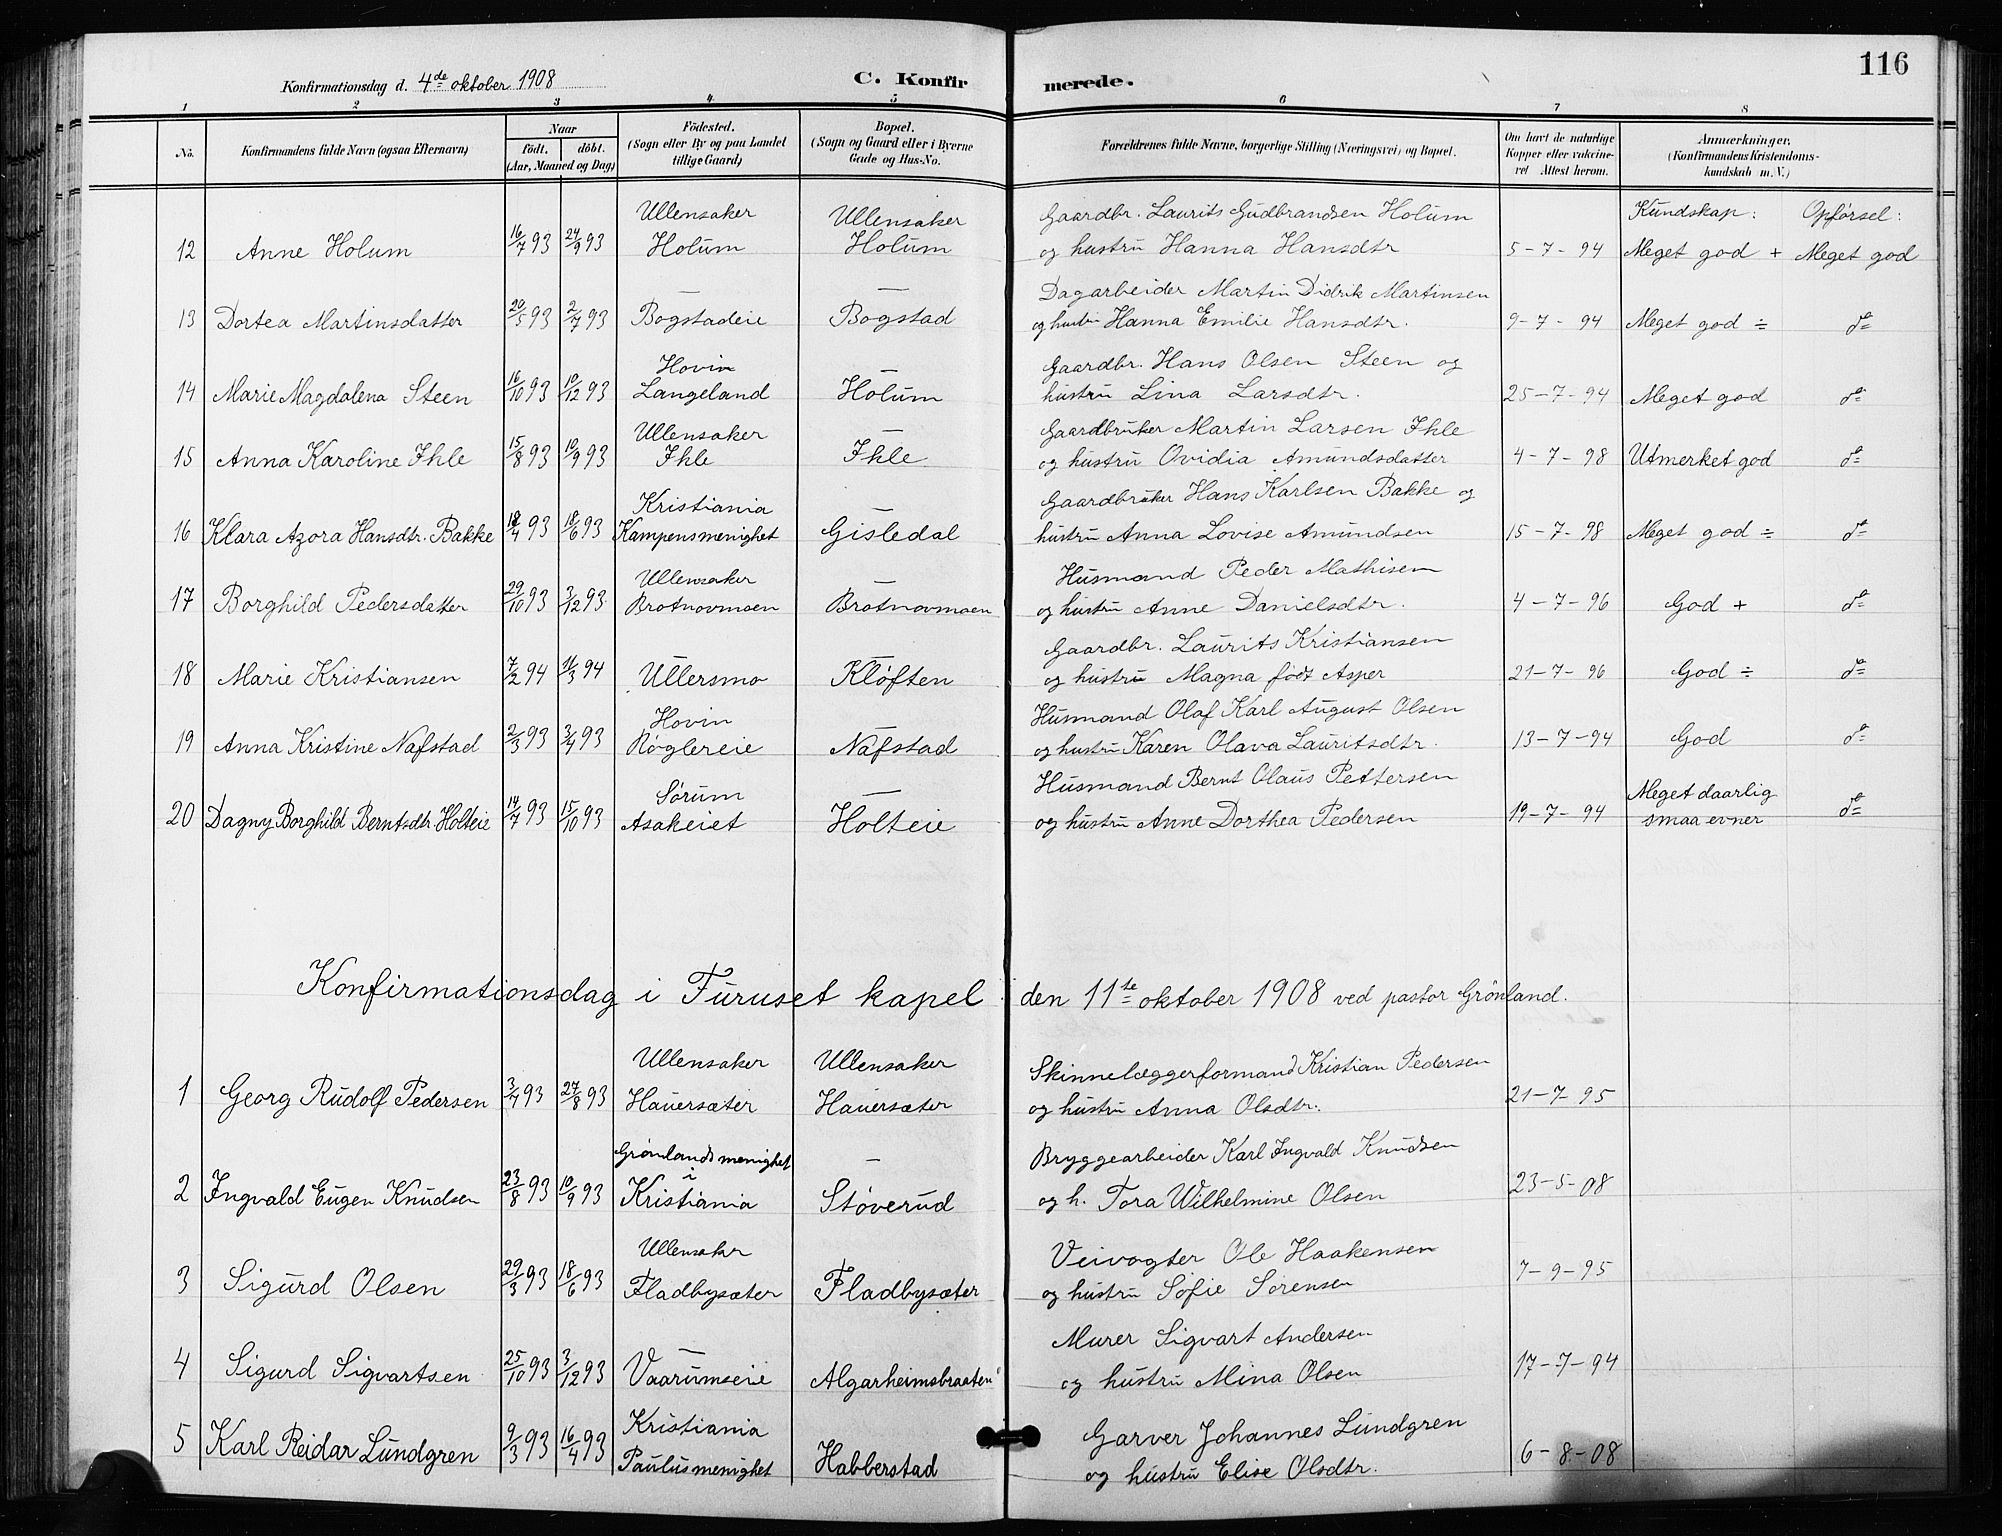 116
Konfirmationsdag d. 4de oktober 1908 C. Konfirmerede.
1 2 3 4 5 6 7 8
No. Konfirmandens fulde Navn (ogsaa Efternavn) Naar født. døbt. (Aar, Maaned og Dag) Fødested. (Sogn eller By og paa Landet tillige Gaard) Bopæl. (Sogn og Gaard eller i Byerne Gade og Hus-No. Forældrenes fulde Navne, borgerlige Stilling (Næringsvei) og Bopæl. Om havt de naturlige Kopper eller vakcineret Attest herom. Anmerkninger. (Konfirmandens Kristendomskundskab m. V.)
Ullensaker Ullensaker Gaardbr. Laurits Gudbrandsen Holum Kundskap: Opførsel:
12 Anne Holum 16/7 93 24/9 93 Holum Holum og hustru Hanna Hansdtr 5-7-94 Meget god + Meget god
— — Dagarbeider Martin Didrik Martinsen
13 Dortea Martinsdatter 20/5 93 2/7 93 Bogstadeie Bogstad og hustru Hanna Emilie Hansdtr. 9-7-94 Meget god ÷ do
Hovin — Gaardbr. Hans Olsen Steen og
14 Marie Magdalena Steen 16/10 93 10/12 93 Langeland Holum hustru Lina Larsdtr. 25-7-94 Meget god do
Ullensaker — Gaardbruker Martin Larsen Ihle
15 Anna Karoline Ihle 15/8 93 10/9 93 Ihle Ihle og hustru Ovidia Amundsdatter 4-7-98 Utmerket god do
Kristiania — Gaardbruker Hans Karlsen Bakke og
16 Klara Azora Hansdtr. Bakke /4 93 18/6 93 Kampensmenighet Gisledal hustru Anna Lovise Amundsen 15-7-98 Meget god ÷ do
Ullensaker — Husmand Peder Mathisen
17 Borghild Pedersdatter 29/10 93 3/12 93 Brotnovmoen Brotnovmoen og hustru Anne Danielsdtr. 4-7-96 God + do
Gaardbr. Laurits Kristiansen
18 Marie Kristiansen 7/2 94 11/3 94 Ullersmo Kløften og hustru Magna født Asper 21-7-96 God ÷ do
Hovin — Husmand Olaf Karl August Olsen
19 Anna Kristine Nafstad 2/3 93 3/4 93 Røglereie Nafstad og hustru Karen Olava Lauritsdtr. 13-7-94 God do
Sørum — Husmand Bernt Olaus Pettersen Meget daarlig
20 Dagny Borghild Berntsdtr Holteie 14/7 93 15/10 93 Asakeiet Holteie og hustru Anne Dorthea Pedersen 19-7-94 smaa evner do
Konfirmationsdag i Furuset kapel den 11te oktober 1908 ved pastor Grönland.
Ullensaker Ullensaker Skinnelæggerformand Kristian Pedersen
1 Georg Rudolf Pedersen 3/7 93 27/8 93 Hauersæter Hauersæter og hustru Anna Olsdtr. 21-7-95
Grønlands menighet i — Bryggearbeider Karl Ingvald Knudsen
2 Ingvald Eugen Knudsen 23/8 93 10/9 93 Kristiania Støverud og h. Tora Wilhelmine Olsen 23-5-08
Ullensaker Veivogter Ole Haakensen
3 Sigurd Olsen 29/3 93 18/6 93 Fladbysæter Fladbysæter og hustru Sofie Sørensen 7-9-95
— Murer Sigvart Andersen
4 Sigurd Sigvartsen 25/10 93 3/12 93 Vaarumseie Algarheimsbraaten og hustru Mina Olsen 17-7-94
Kristiania Garver Johannes Lundgren
5 Karl Reidar Lundgren 9/3 93 16/4 93 Paulusmenighet Habberstad og hustru Elise Olsdtr. 6-8-08